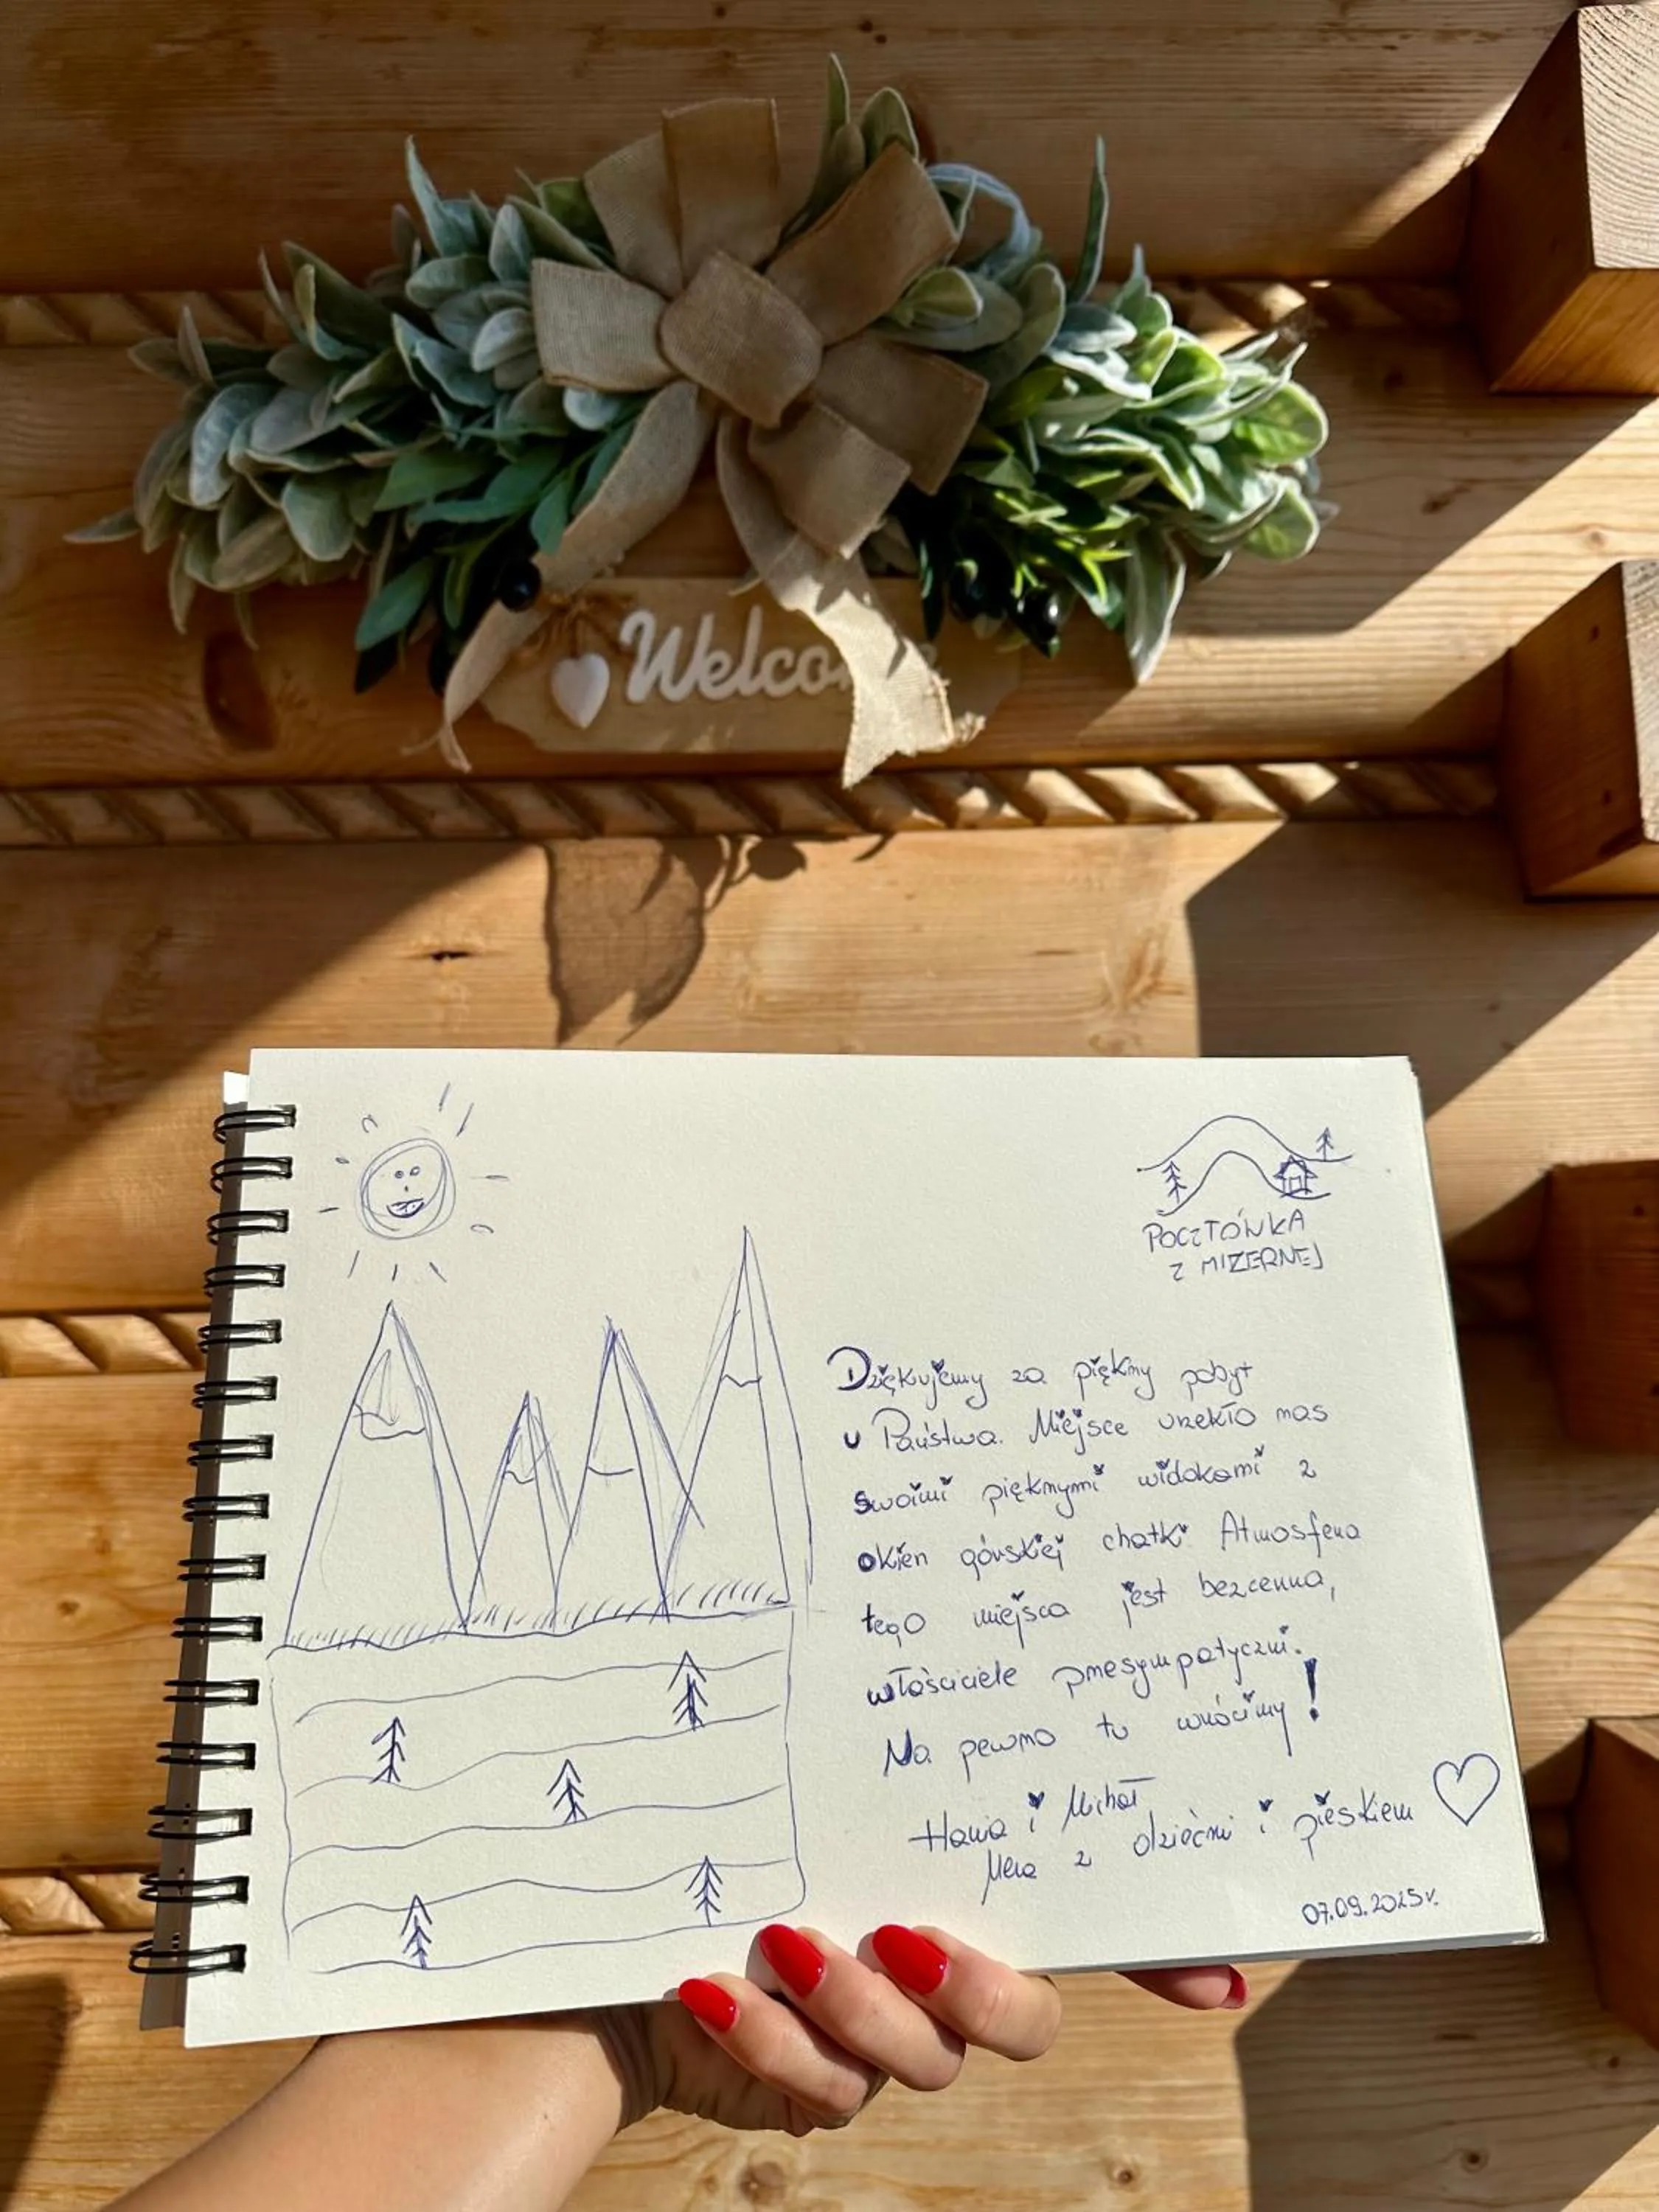 Welco
POCZTÓWKA
Z MIZERNEJ
Dziękujemy za piękny pobyt
u Państwa. Miejsce urzekło nas
swoimi pięknymi widokami z
okien górskiej chatki. Atmosfera
tego miejsca jest bezcenna,
właściciele przesympatyczni.
Na pewno tu wrócimy!
Hania i Michał
z dziećmi i pieskiem
07.09.2025r.